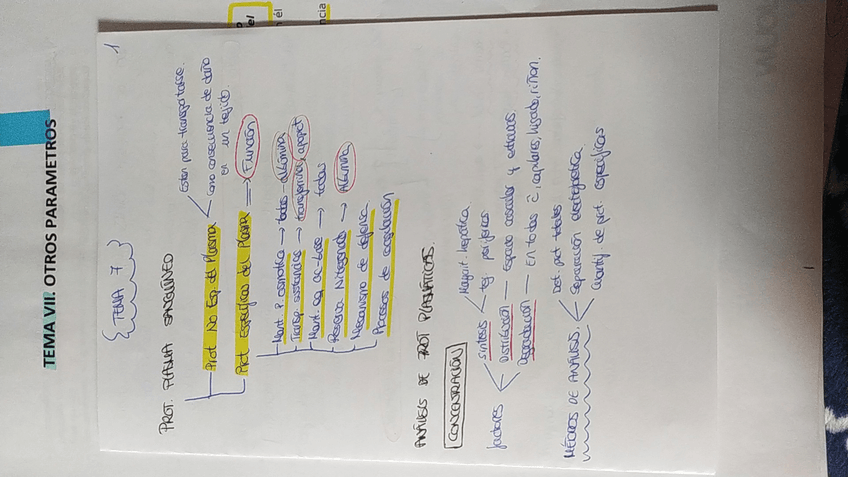 TEMA VII. OTROS PARAMETROS
1
{TEMA 7}
PROT. PLASMA SANGUÍNEO
Prot No Esp del Plasma
Están para transportarse.
como consecuencia de daño
en un tejido.
Prot Específicas del Plasma => Función
Mant. P. osmótica → todas - albúmina
Transp. sustancias → transferrina, apoprot
Mant. eq. ac-base → todas
Reserva Nitrogenada → Albúmina
Mecanismo de defensa
Procesos de coagulación
ANÁLISIS DE PROT PLASMÁTICAS.
CONCENTRACIÓN
factores
Síntesis
Mayorit. hepática
tej. periféricos
Distribución — Espacio vascular y extravas.
Degradación — En todas c., capilares, hígado, riñon.
MÉTODOS DE ANÁLISIS.
Det. prot totales
Separación electroforética
Cuantif. de prot. específicas
el
n él
ncia